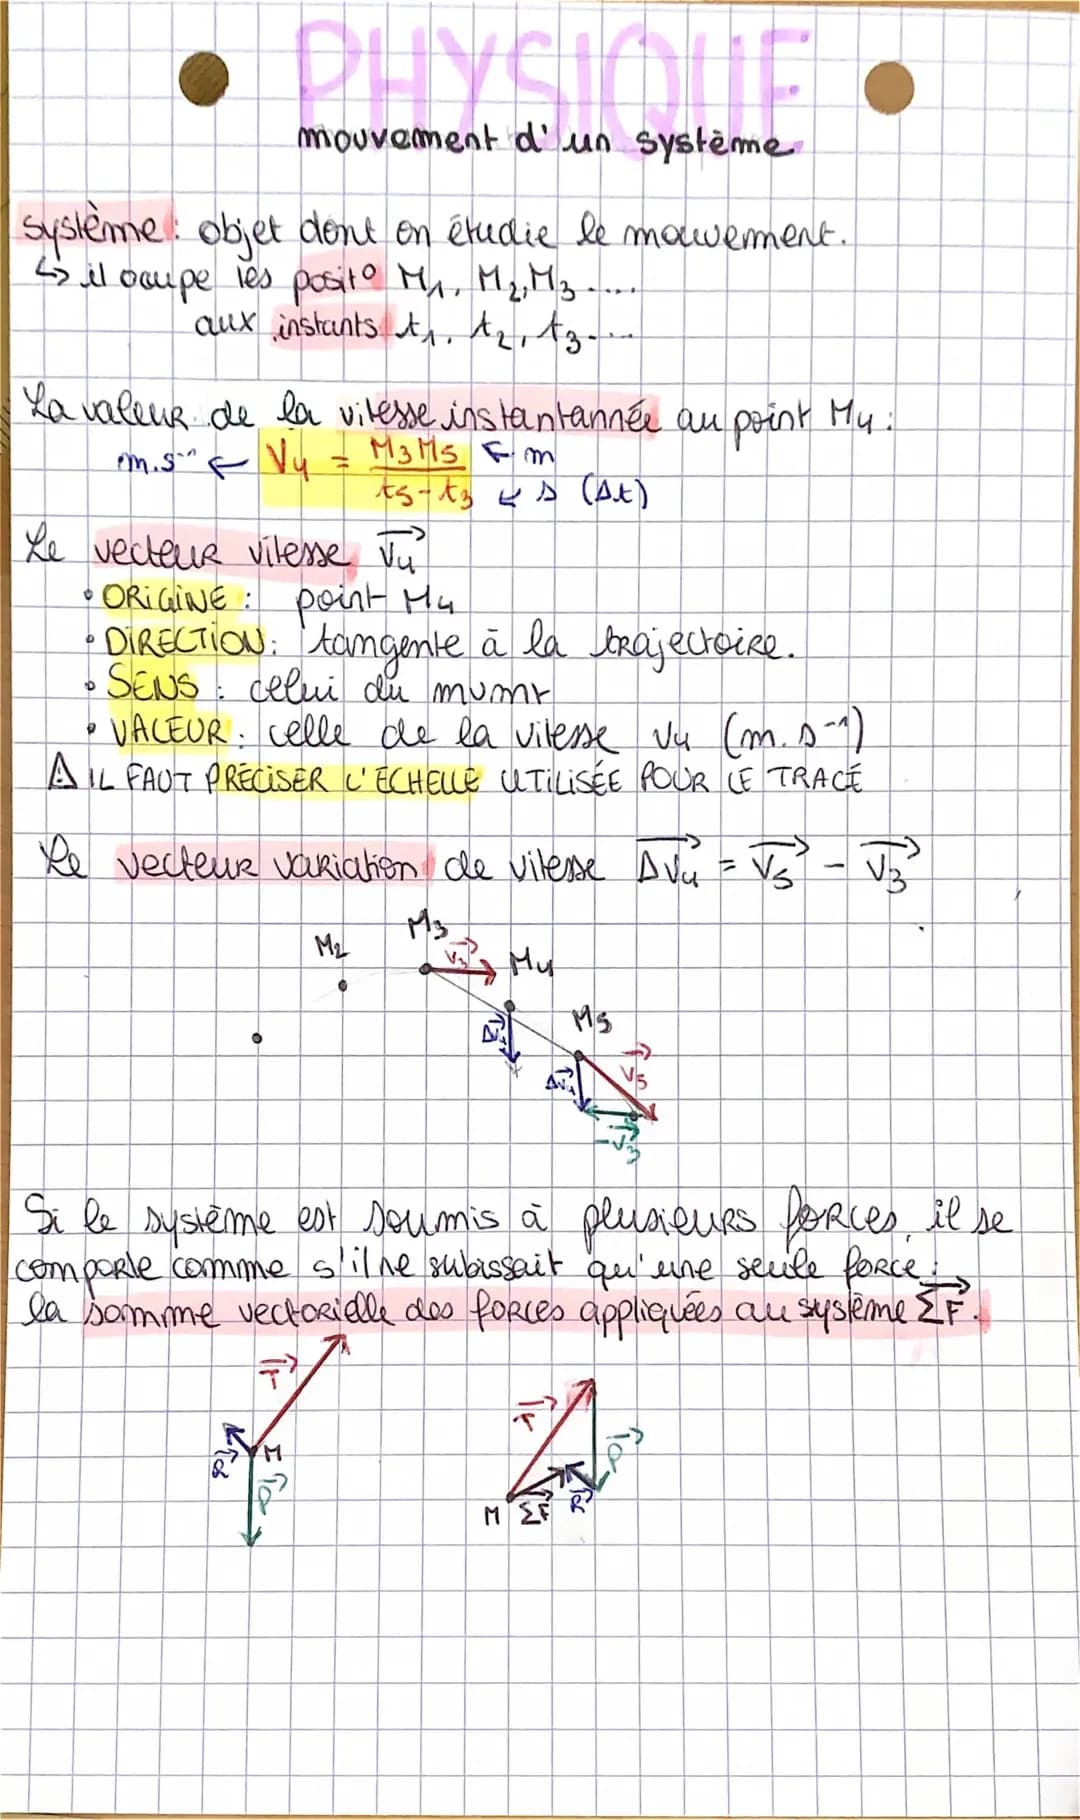 PHYSIQUE
mouvement d'un système
système : objet dont on étudie le mouvement.
↳ il occupe les posit° M₁, M₂, M₃ ....
aux instants t₁, t₂, t₃ ....
La valeur de la vitesse instantannée au point M₄ :
m.s⁻¹ ← V₄ = M₃M₅ / t₅-t₃ ← m ↙ s (Δt)
Le vecteur vitesse V₄→
• ORIGINE : point M₄
• DIRECTION : tangente à la trajectoire.
• SENS : celui du mvmt
• VALEUR : celle de la vitesse V₄ (m.s⁻¹)
⚠ IL FAUT PRÉCISER L'ÉCHELLE UTILISÉE POUR LE TRACÉ
Le vecteur variation de vitesse ΔV₄→ = V₅→ - V₃→
M₂ M₃ V₃→ M₄
ΔV₄→ M₅
ΔV₄→ V₅→
-V₃→
Si le système est soumis à plusieurs forces, il se
comporte comme s'il ne subissait qu'une seule force :
la somme vectorielle des forces appliquées au système ΣF→.
T→ T→
R→ M P→
P→
M ΣF→ R→